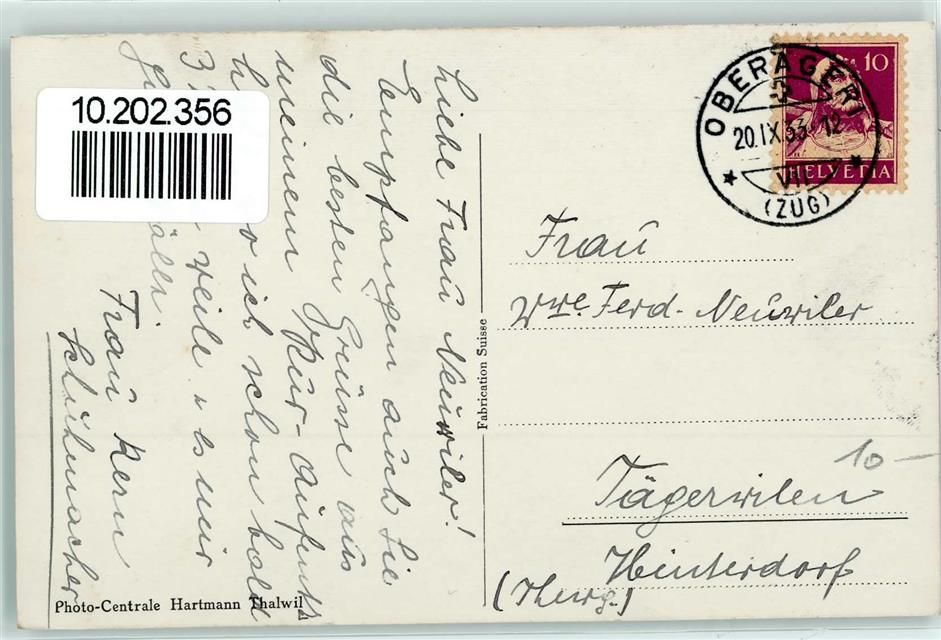 10.202.356
Liebe Frau Neuwiler!
Empfangen auch Sie
die besten Grüsse aus
meinem Kur-Aufenth.
ich schon bald
3 weile u. es mir
Frau Kern
Schuhmacher
Photo-Centrale Hartmann Thalwil
Fabrication Suisse
OBERÄGERI
20.IX.33-12
VII
(ZUG)
10
HELVETIA
Frau
Wwe. Ferd. Neuwiler
10—
Tägerwilen
Hinterdorf
(Thurg.)